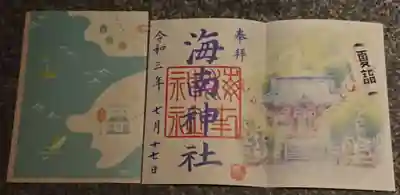 奉拝
海南神社
令和三年 七月十七日
夏詣